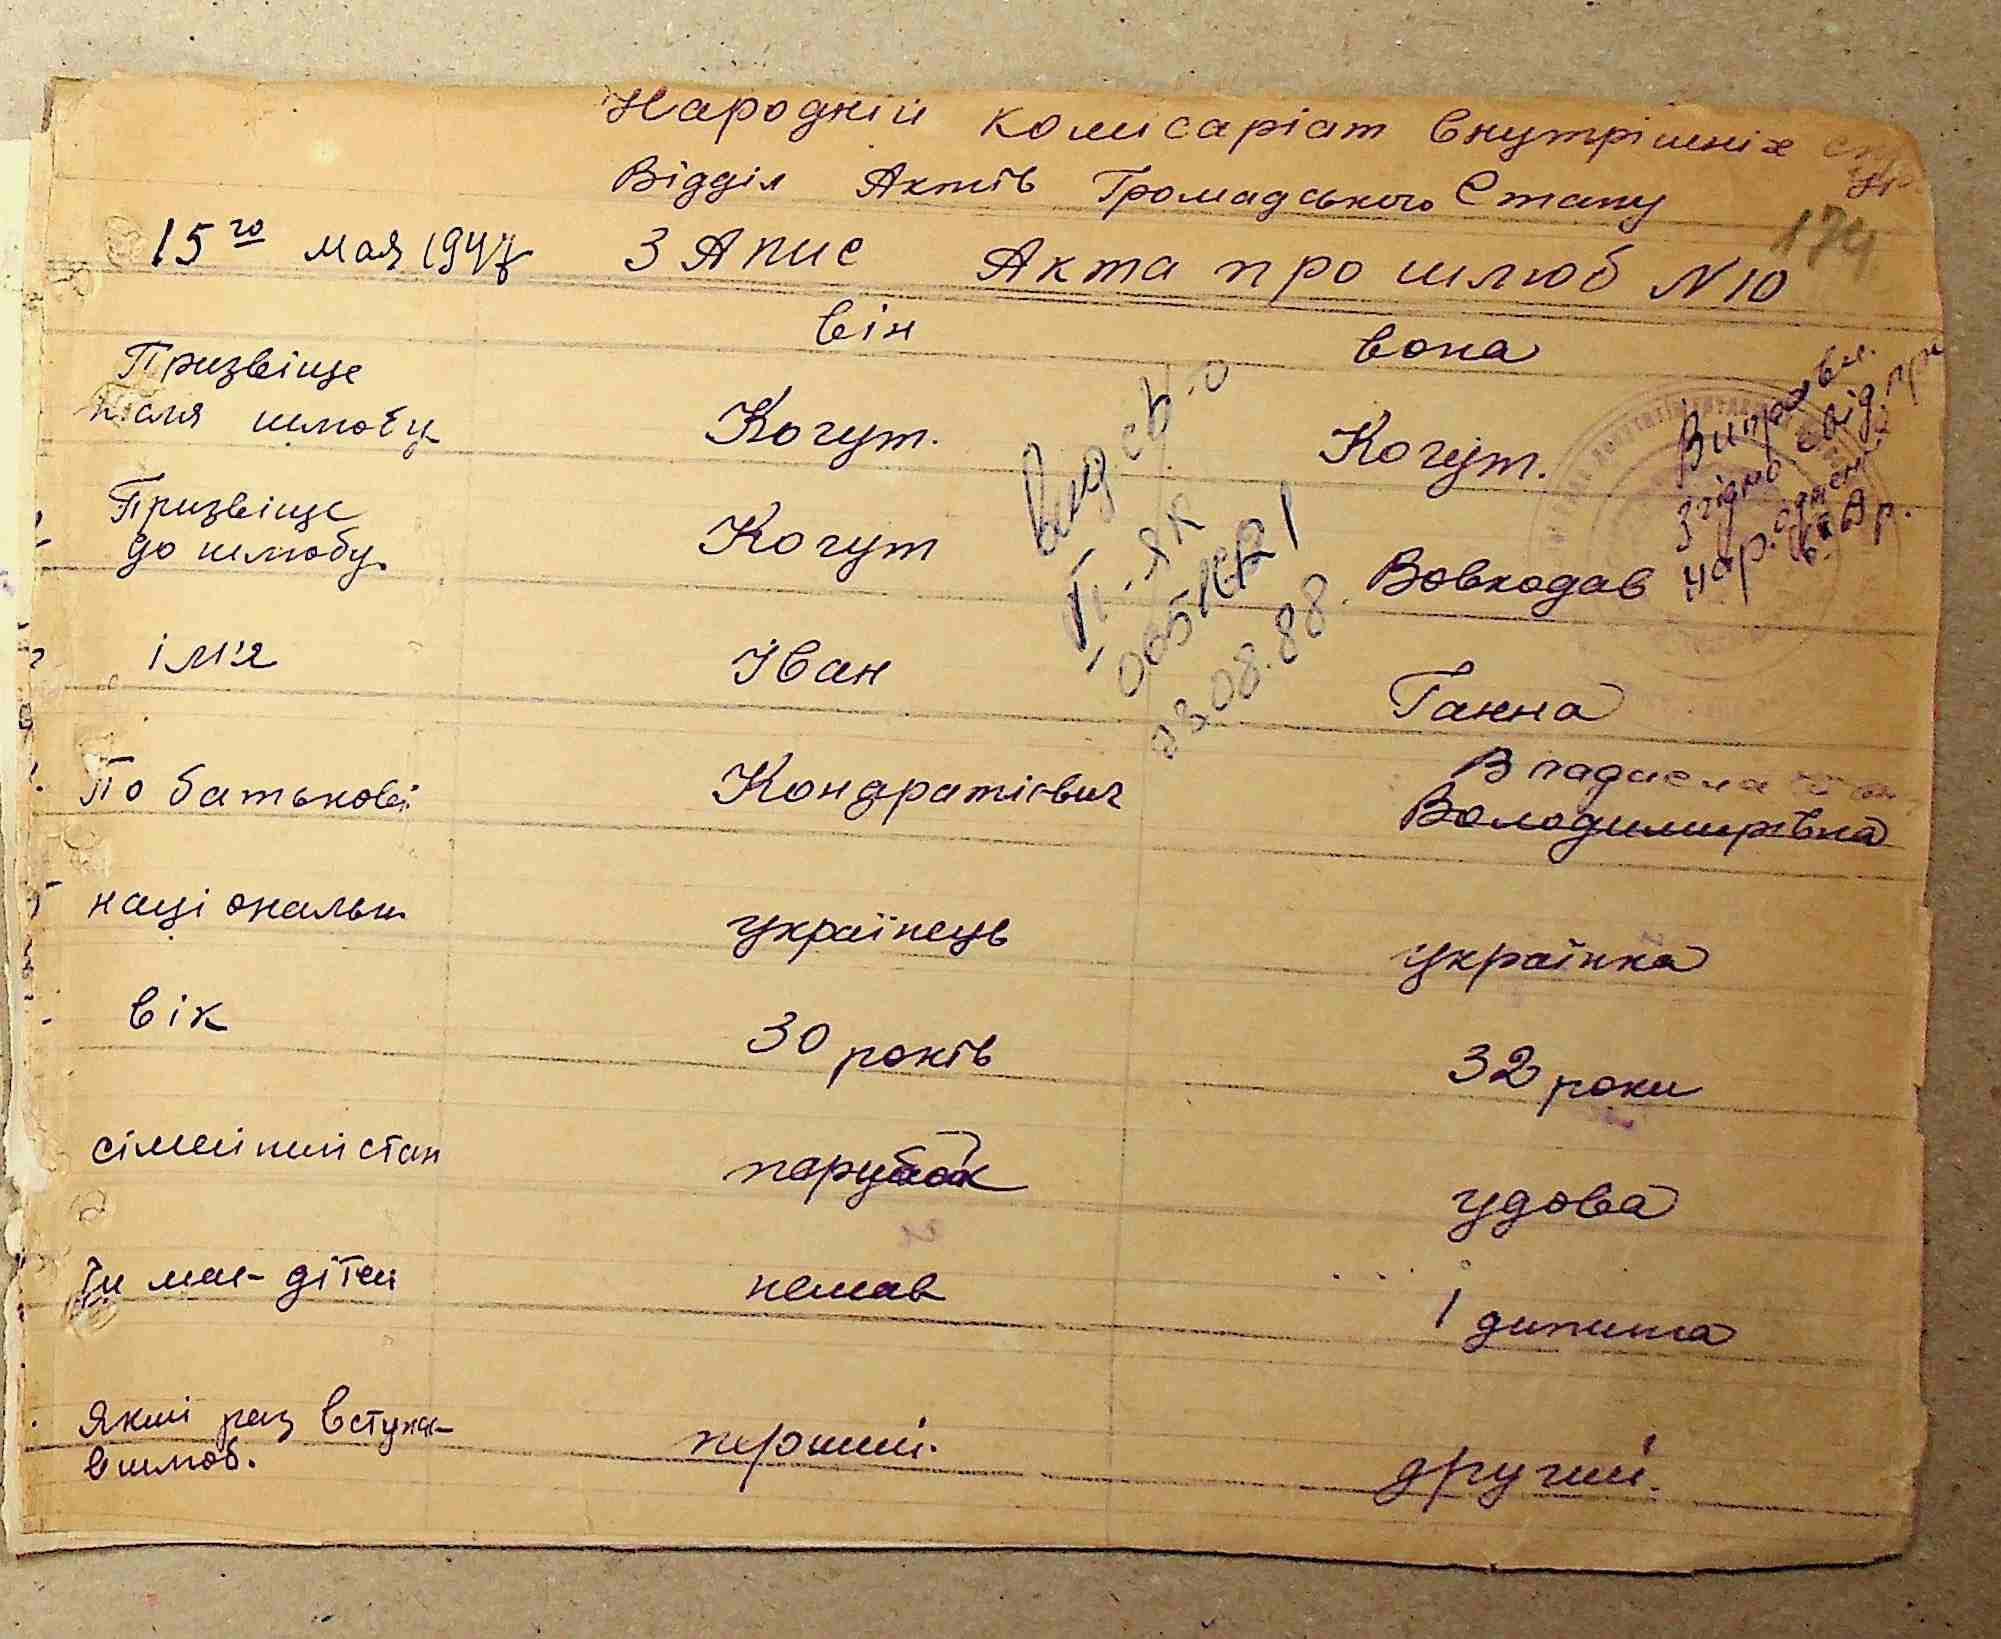 Народній комісаріат внутрішніх спр
Відділ Актів Громадського Стану
174
15го мая 1947 ЗАпис Акта про шлюб N 10
він вона
Призвіще
після шлюбу Когут. Когут.
Виправл.
згідно свід про
нар.
Вид св-о
II-ЯК
005182 1
03.08.88.
Призвіще
до шлюбу. Когут Вовкодав
ім'я Іван Ганна
По батькові Кондратієвич Владисла
Володимирівна
національн. українець українка
вік 30 років 32 роки
сімейний стан парубок удова
Чи має дітей немав 1 дитина
Який раз вступає
в шлюб. перший. другий.